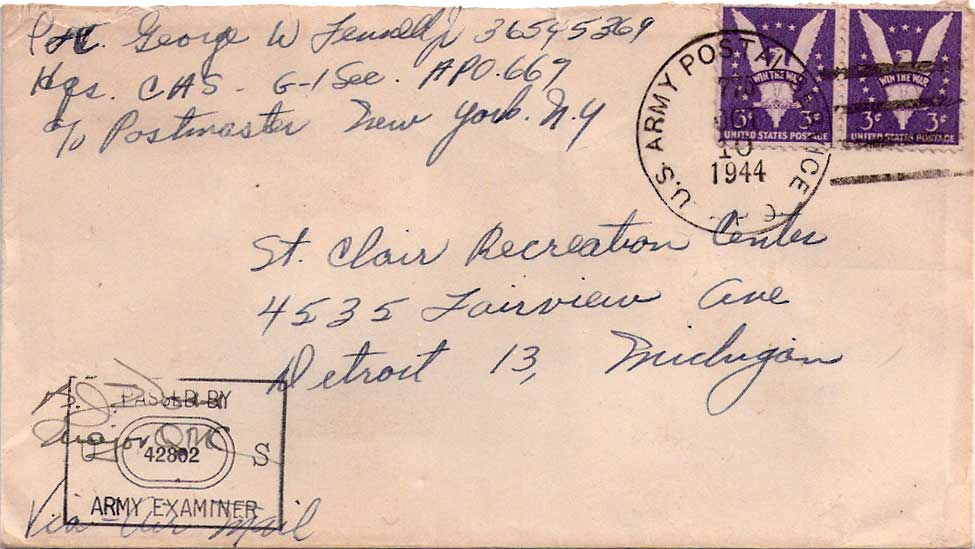 Pfc. George W Fennell Jr 36545369
Hqs. CAS - G-1 Sec. APO. 667
c/o Postmaster New York. N.Y
U.S. ARMY POSTAL SERVICE
10
1944
WIN THE WAR
3¢ 3¢
UNITED STATES POSTAGE
WIN THE WAR
3¢ 3¢
UNITED STATES POSTAGE
St. Clair Recreation Center
4535 Fairview Ave
Detroit 13, Michigan
PASSED BY
Major QMC
U 42802 S
ARMY EXAMINER
Via Air Mail